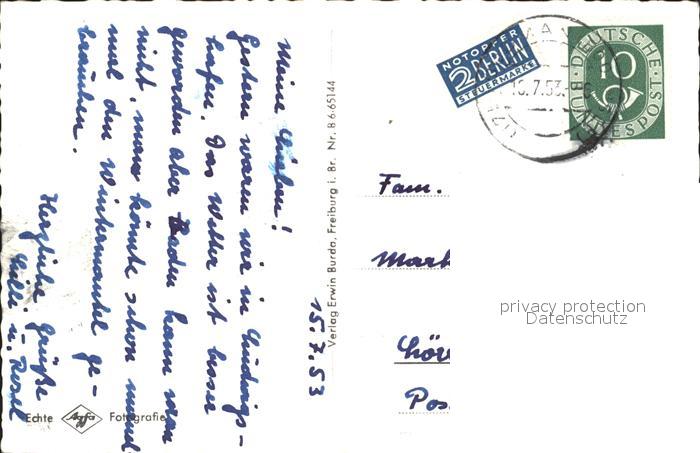 15.7.53
Meine Lieben!
Gestern waren wir in Ludwigs-
hafen. Das Wetter ist besser
geworden aber Baden kann man
nicht, man könnte schon manch-
mal den Wintermantel ge-
brauchen.
Herzliche Grüße
Willi u. Resel
Echte Agfa Fotografie
Verlag Erwin Burda, Freiburg i. Br. Nr. 8 6/65144
NOTOPFER
2 BERLIN
STEUERMARKE
DEUTSCHE
10
BUNDESPOST
7.53
Fam.
Mark
Pos
privacy protection
Datenschutz